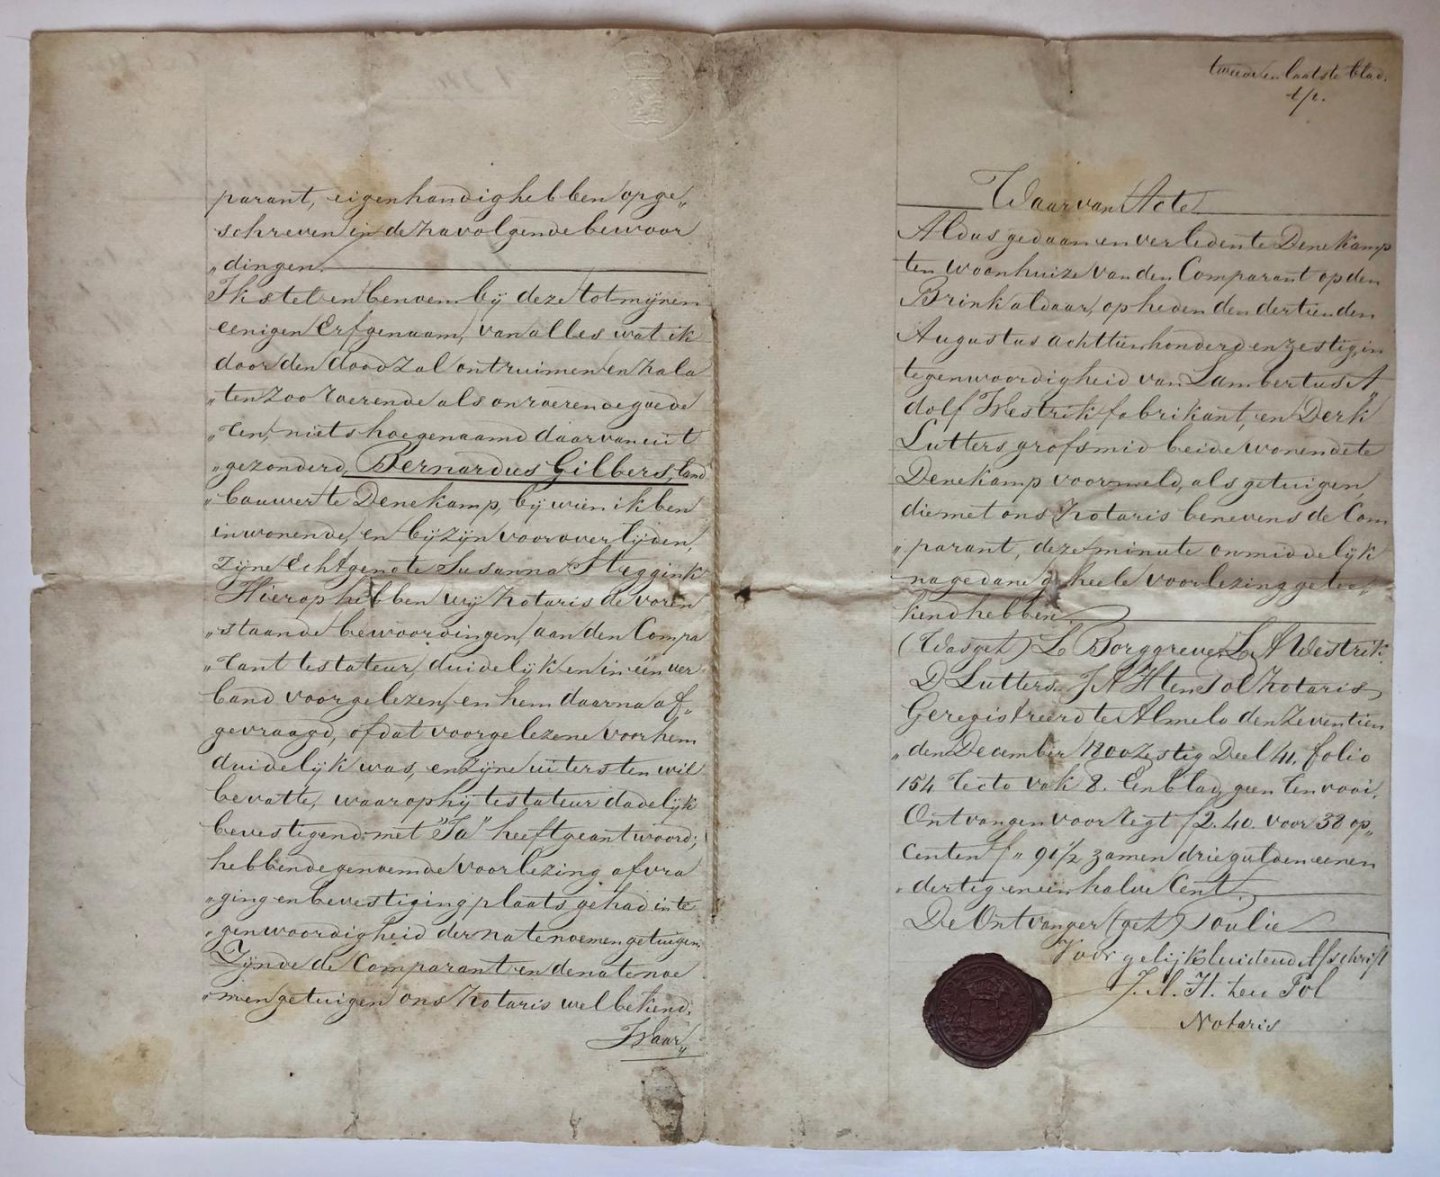 parant, eigenhandig hebben opge„
„schreven in de navolgende bewoor
„dingen.
Ik stel en benoem bij deze tot mijnen
eenigen Erfgenaam, van alles wat ik
door den dood zal ontruimen en nala
„ten zoo roerende als onroerende goede
„ren, niets hoegenaamd daarvan uit
„gezonderd, Bernardus Gilbers, land
„bouwer te Denekamp, bij wien ik ben
inwonende, en bij zijn vooroverlijden,
zijne Echtgenote Susanna Steggink
Hierop hebben wij Notaris de voren
„staande bewoordingen, aan den Compa
„rant testateur, duidelijk en in een ver
band voorgelezen, en hem daarna af„
gevraagd, of dat voorgelezene voor hem
duidelijk was, en zijne uitersten wil
bevatte, waarop hij testateur dadelijk
bevestigend met "Ja" heeft geantwoord;
hebbende genoemde voorlezing afvra
„ging en bevestiging plaats gehad in te
„genwoordigheid der natenoemen getuigen,
Zijnde de Comparant en de natenoe
„men getuigen ons Notaris wel bekend.
Waar„
tweede en laatste blad.
tp.
Waarvan Acte
Aldus gedaan en verleden te Denekamp
ten woonhuize van den Comparant op den
Brink aldaar, op heden den dertienden
Augustus achttienhonderd en zestig, in
tegenwoordigheid van Lambertus A
dolf Westrik fabrikant, en Derk
Lutters grofsmid beide wonende te
Denekamp voormeld, als getuigen,
die met ons Notaris benevens de Com
„parant, deze minute onmiddelijk
na gedane geheele voorlezing getee„
kend hebben.
(Was get) L Borggreve, L A Westrik.
D Lutters. J A H ten Tol Notaris
Geregistreerd te Almelo den zeventien
„den December 1800 zestig Deel 41. folio
154 recto vak 8. Een blad geen renvooi.
Ontvangen voor regt f 2.40. voor 38 op„
centen f „ 91½ zamen drie gulden eenen
„dertig en een halve Cent.
De Ontvanger (get) Soulie
Voor gelijkluidend Afschrift
J. A. H. ten Tol
Notaris